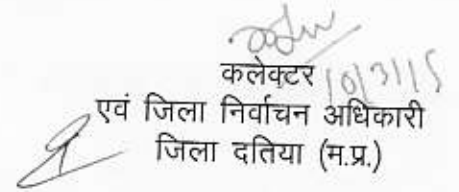 कलेक्टर
एवं जिला निर्वाचन अधिकारी
जिला दतिया (म.प्र.)